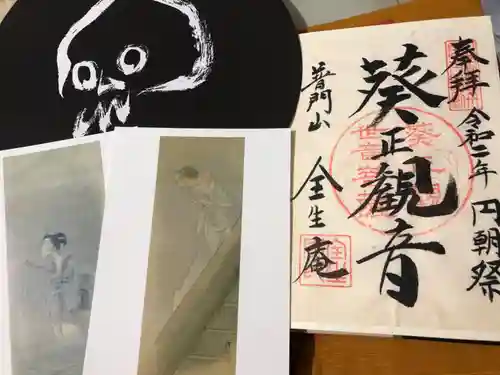 奉拝
令和二年
円朝祭
葵正観音
普門山
全生庵